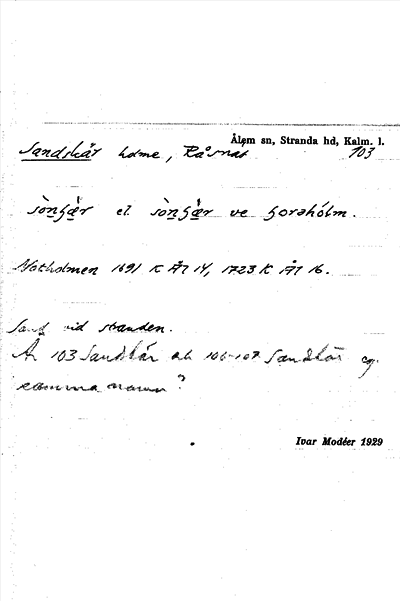 Ålem sn, Stranda hd, Kalm. l.
Sandskär holme, Råsnäs 103
sòngǟr el. sòngǟr ve horəhólm.
Notholmen 1691 K ÅI 14, 1723 K ÅI 16.
Sand vid stranden.
Är 103 Sandskär och 106-107 Sandskär eg.
samma namn?
Ivar Modéer 1929